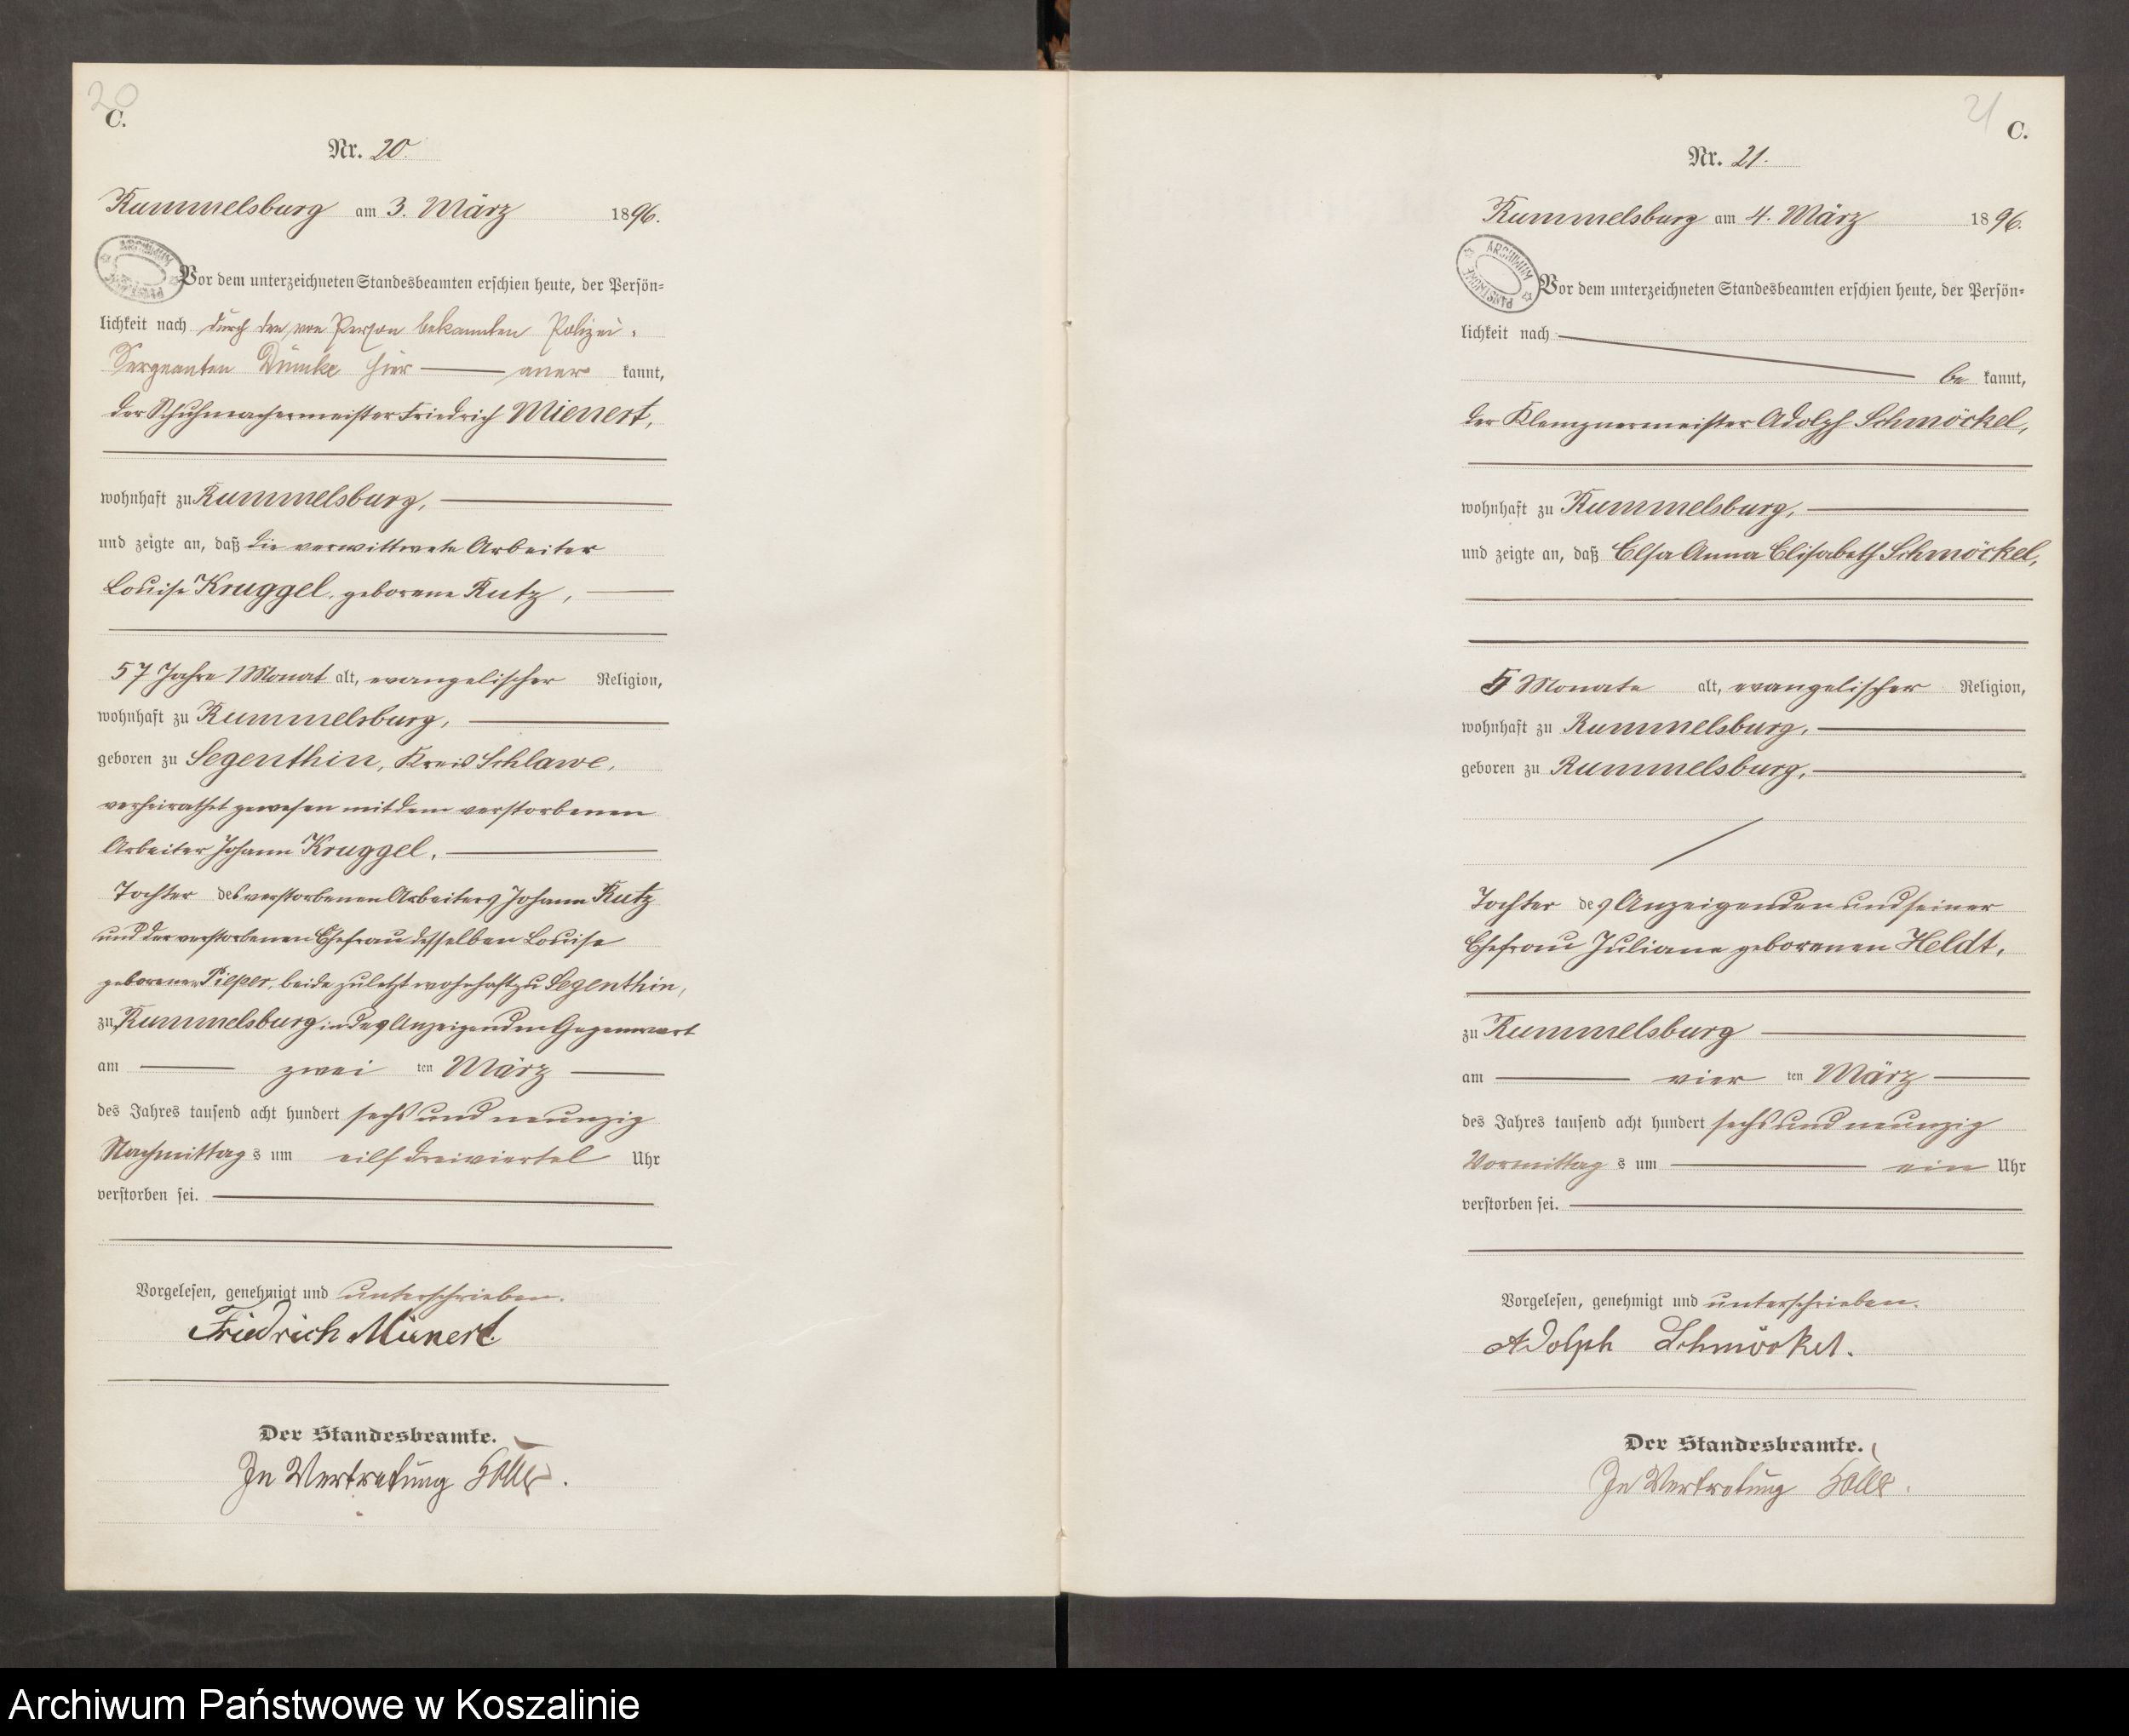 20
C.
Nr. 20.
Rummelsburg am 3. März 1896.
ARCHIWUM PAŃSTWOWE
Vor dem unterzeichneten Standesbeamten erschien heute, der Persön-
lichkeit nach durch den von Person bekannten Polizei-
Sergeanten Dümke hier aner kannt,
der Schuhmachermeister Friedrich Mienert,
wohnhaft zu Rummelsburg,
und zeigte an, daß die verwittwete Arbeiter
Louise Kruggel, geborene Rutz,
57 Jahre 1 Monat alt, evangelischer Religion,
wohnhaft zu Rummelsburg,
geboren zu Segenthin, Kreis Schlawe,
verheirathet gewesen mit dem verstorbenen
Arbeiter Johann Kruggel,
Tochter des verstorbenen Arbeiters Johann Rutz
und der verstorbenen Ehefrau desselben Louise
geborener Pieper, beide zuletzt wohnhaft zu Segenthin,
zu Rummelsburg in des Anzeigenden Gegenwart
am zwei ten März
des Jahres tausend acht hundert sechs und neunzig
Nachmittag s um eilf dreiviertel Uhr
verstorben sei.
Vorgelesen, genehmigt und unterschrieben.
Friedrich Mienert.
Der Standesbeamte.
In Vertretung
21
C.
Nr. 21.
Rummelsburg am 4. März 1896.
ARCHIWUM PAŃSTWOWE
Vor dem unterzeichneten Standesbeamten erschien heute, der Persön-
lichkeit nach
be kannt,
der Klempnermeister Adolph Schmöckel,
wohnhaft zu Rummelsburg,
und zeigte an, daß Elsa Anna Elisabeth Schmöckel,
5 Monate alt, evangelischer Religion,
wohnhaft zu Rummelsburg,
geboren zu Rummelsburg,
Tochter des Anzeigenden und seiner
Ehefrau Juliane geborenen Heldt,
zu Rummelsburg
am vier ten März
des Jahres tausend acht hundert sechs und neunzig
Vormittag s um ein Uhr
verstorben sei.
Vorgelesen, genehmigt und unterschrieben.
Adolph Schmöckel.
Der Standesbeamte.
In Vertretung
Archiwum Państwowe w Koszalinie